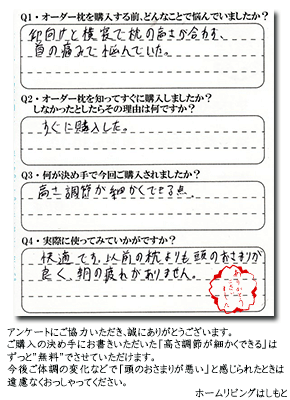 Q1・オーダー枕を購入する前、どんなことで悩んでいましたか?
仰向けと横寝で枕の高さが合わず、
首の痛みで悩んでいた。
Q2・オーダー枕を知ってすぐに購入しましたか?
しなかったとしたらその理由は何ですか?
すぐに購入した。
Q3・何が決め手で今回ご購入されましたか?
高さ調節が細かくできる点。
Q4・実際に使ってみていかがですか?
快適です。以前の枕よりも頭のおさまりが
良く、朝の疲れがありません。
アンケートにご協力いただき、誠にありがとうございます。
ご購入の決め手にお書きいただいた「高さ調節が細かくできる」は
ずっと"無料"でさせていただけます。
今後ご体調の変化などで「頭のおさまりが悪い」と感じられたときは
遠慮なくおっしゃってください。
ホームリビングはしもと